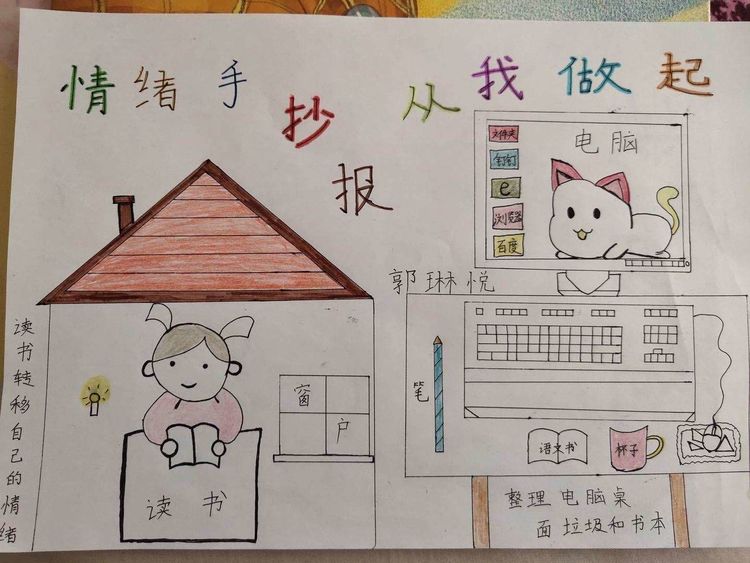 情绪手抄报
从我做起
文件夹
钉钉
e
浏览器
百度
电脑
郭琳悦
读书转移自己的情绪
窗户
读书
笔
语文书
杯子
整理电脑桌
面垃圾和书本